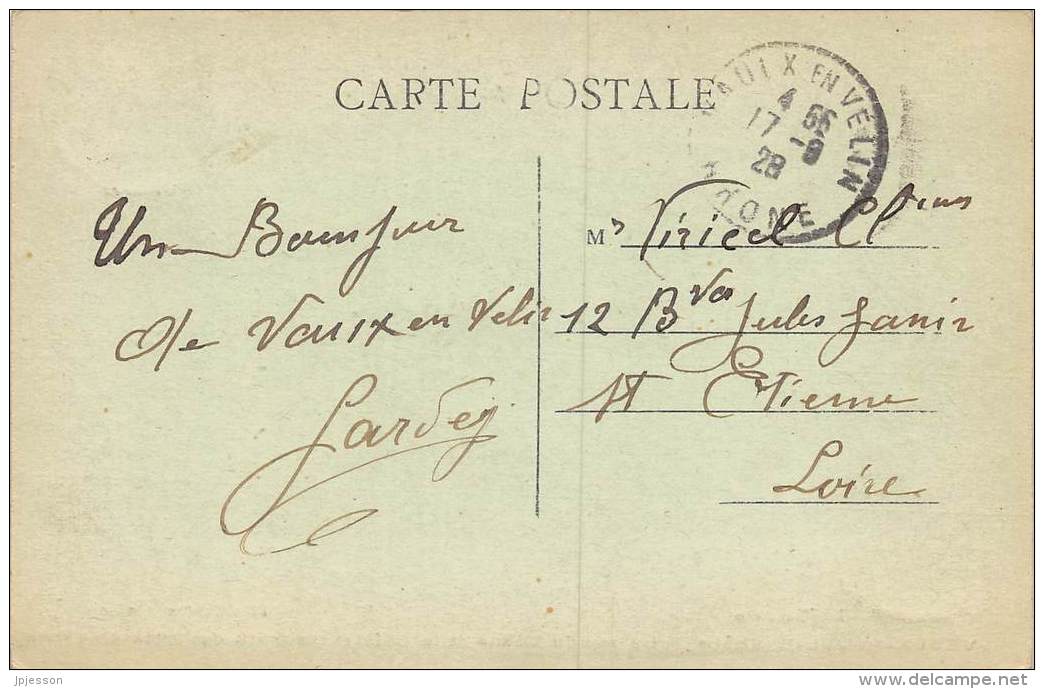 CARTE POSTALE
VAULX EN VELIN
4 55
17 - 9
28
RHONE
Un Bonjour
de Vaulx en Velin
Mr Viricel Cl
12 Bvd Jules Janin
St Etienne
Loire
jpjesson
www.delcampe.net